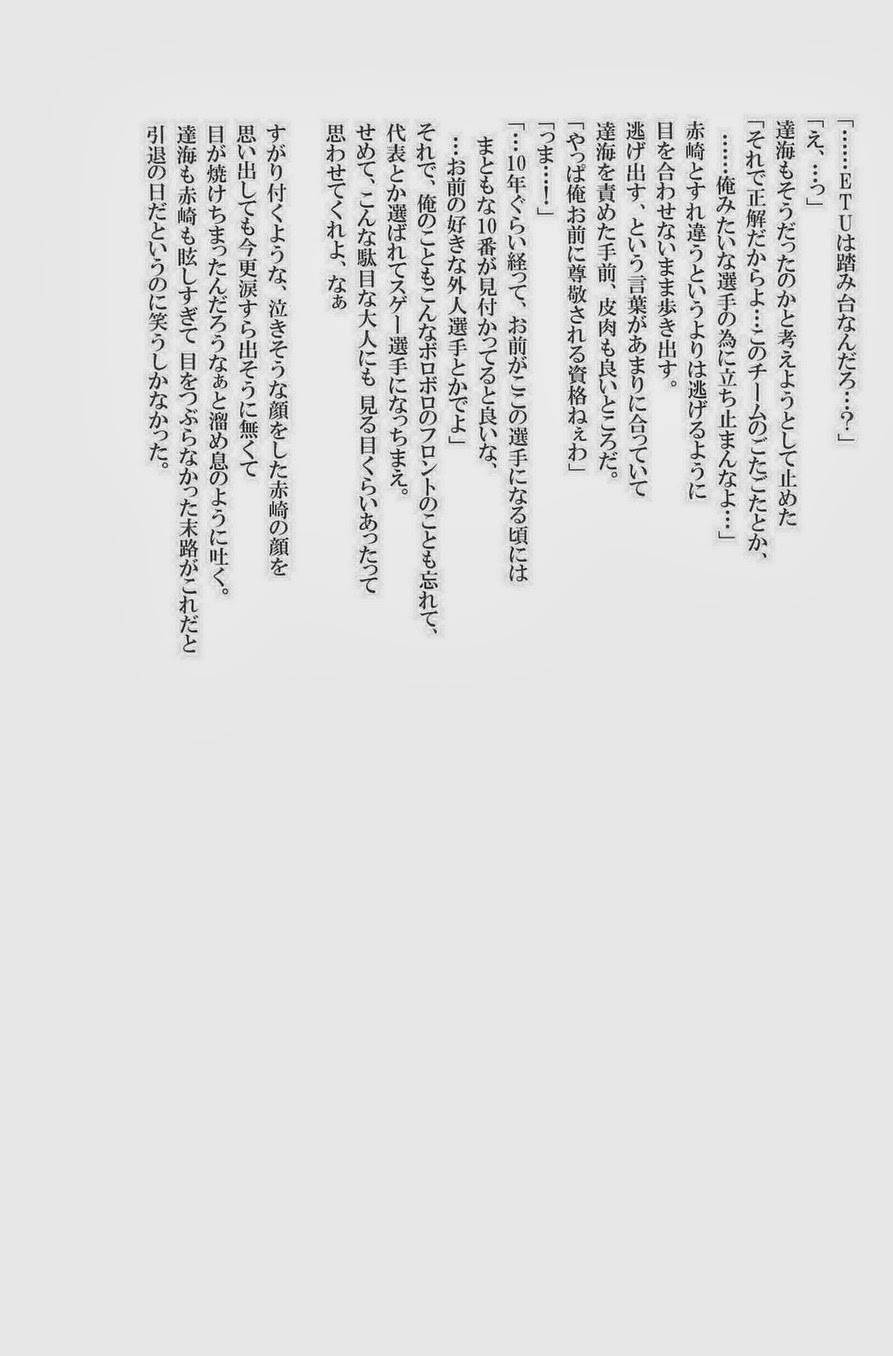 「……ETUは踏み台なんだろ…？」
「え、…っ」
達海もそうだったのかと考えようとして止めた
「それで正解だからよ…このチームのごたごたとか、
……俺みたいな選手の為に立ち止まんなよ…」
赤崎とすれ違うというよりは逃げるように
目を合わせないまま歩き出す。
逃げ出す、という言葉があまりに合っていて
達海を責めた手前、皮肉も良いところだ。
「やっぱ俺お前に尊敬される資格ねぇわ」
「っま…！」
「…10年ぐらい経って、お前がここの選手になる頃には
まともな10番が見付かってると良いな、
…お前の好きな外人選手とかでよ」
それで、俺のこともこんなボロボロのフロントのことも忘れて、
代表とか選ばれてスゲー選手になっちまえ。
せめて、こんな駄目な大人にも 見る目くらいあったって
思わせてくれよ、なぁ
すがり付くような、泣きそうな顔をした赤崎の顔を
思い出しても今更涙すら出そうに無くて
目が焼けちまったんだろうなぁと溜め息のように吐く。
達海も赤崎も眩しすぎて 目をつぶらなかった末路がこれだと
引退の日だというのに笑うしかなかった。